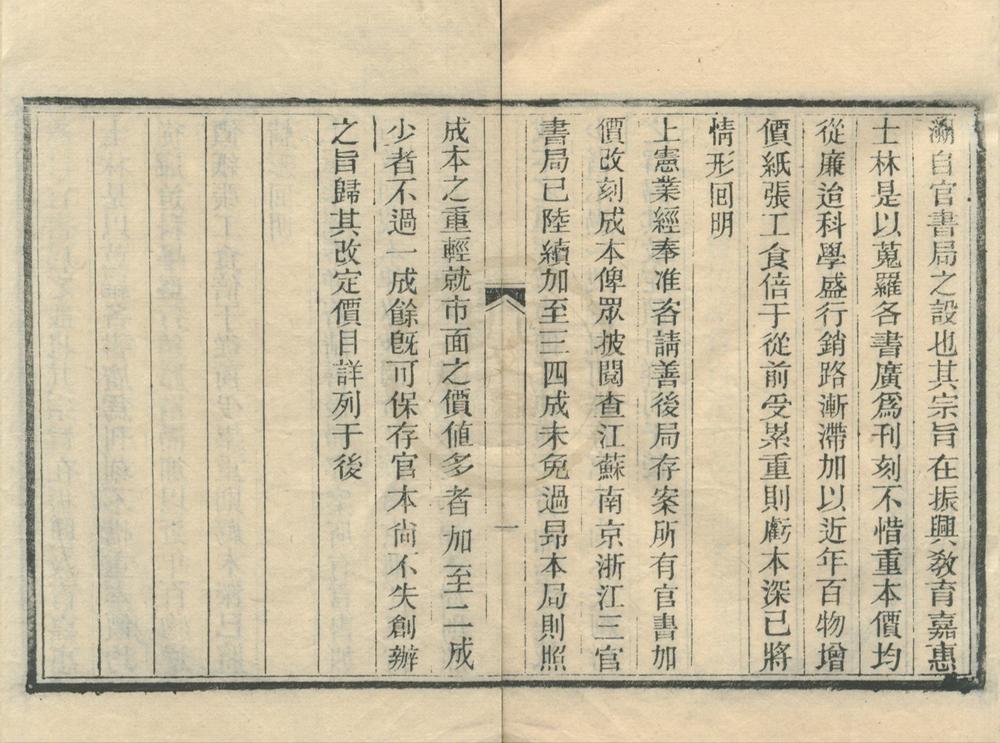 溯自官書局之設也其宗旨在振興教育嘉惠
士林是以蒐羅各書廣爲刊刻不惜重本價均
從廉迨科學盛行銷路漸滯加以近年百物增
價紙張工食倍于從前受累重則虧本深已將
情形囘明
上憲業經奉准咨請善後局存案所有官書加
價改刻成本俾眾披閱查江蘇南京浙江三官
書局已陸續加至三四成未免過昂本局則照
一
成本之重輕就市面之價値多者加至二成
少者不過一成餘旣可保存官本尙不失創辦
之旨歸其改定價目詳列于後